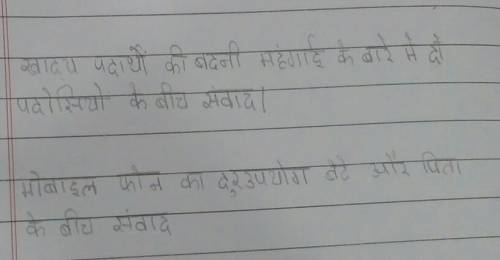 खाद्य पदार्थों की बदती महंगाई के बारे मे दो
पदोसियो के बीच संवाद।
मोबाइल फोन का दुरुउपयोग बेटे और पिता
के बीच संवाद